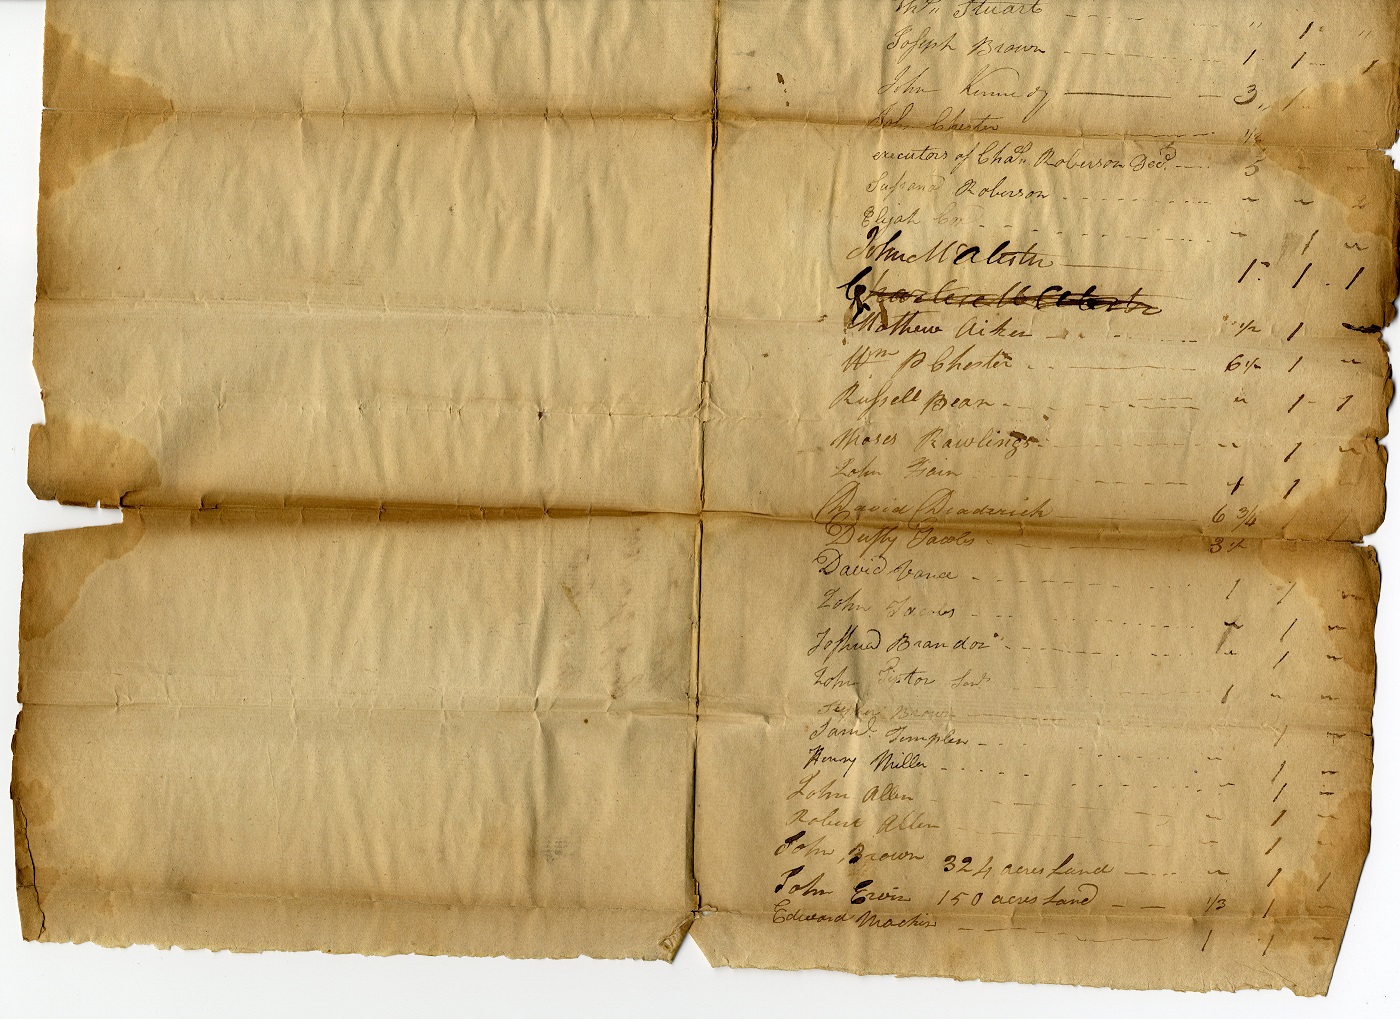 Thos Stuart " 1 "
Joseph Brown 1 1 1
John Kennedy 3 1
John Chester 1/2
executors of Chas. Roberson Decd. 5
Susana Roberson " " 2
Elijah " 1 "
John McAlister 1 1 1
Charles McAlister
Mathew Aiken 1/2 1 "
Wm P Chester 6 1/2 1 "
Russell Bean " 1 1
Moses Rawlings " 1 "
John Fain 1 1
David Deaderick 6 3/4 1 1
Duffy Jacobs 3 1/2
David Vance 1 1 "
John " 1 "
Joshua Brandon " 1 "
John Tipton Senr 1 " "
Brown 1 "
Saml. Templen " 1 "
Henry Miller " 1 "
John Allen " 1 "
Robert Allen " 1
John Brown 324 acres Land " 1 1
John Ervin 150 acres Land 1/3 1 "
Edward Mackin 1 1 "